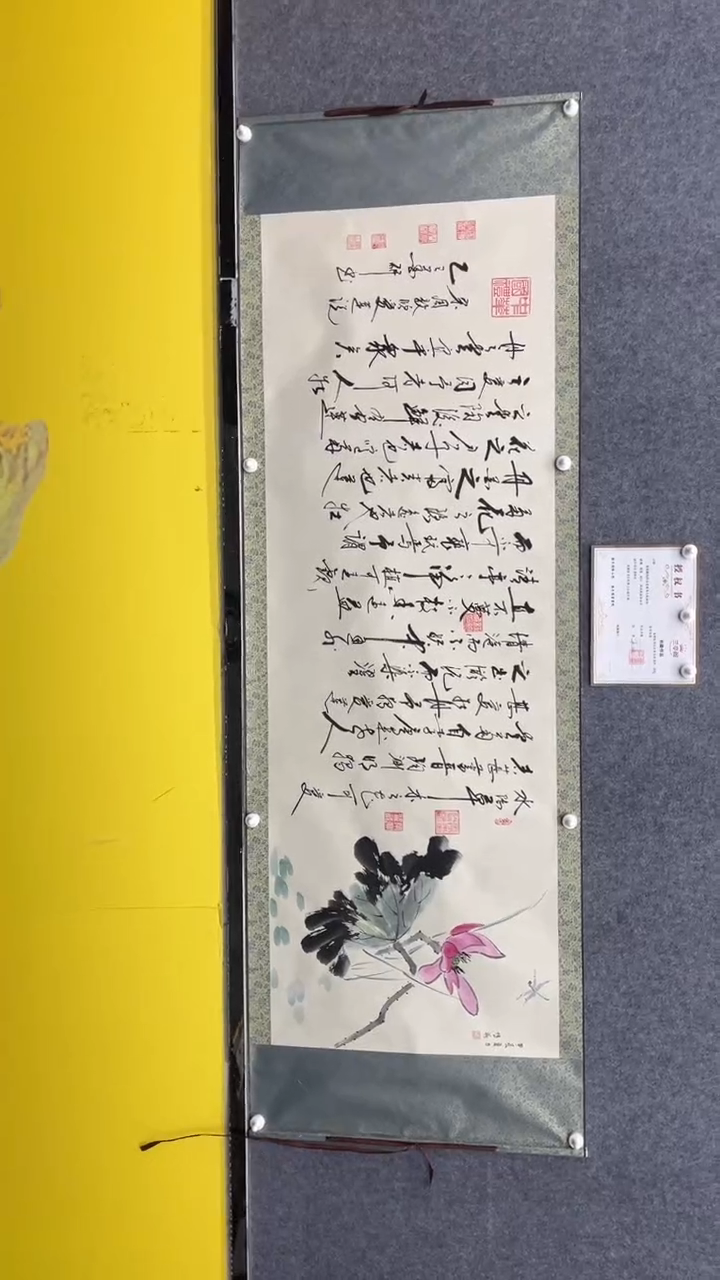 水陆草木之花可爱
者甚蕃晋陶渊明独
爱菊自李唐来世人
甚爱牡丹予独爱莲
之出淤泥而不染濯
清涟而不妖中通外
直不蔓不枝香远益
清亭亭净植可远观
而不可亵玩焉予谓
菊花之隐逸者也牡
丹花之富贵者也莲
花之君子者也噫菊
之爱陶后鲜有闻莲
之爱同予者何人牡
丹之爱宜乎众矣
宋周敦颐爱莲说
乙巳年
授权书